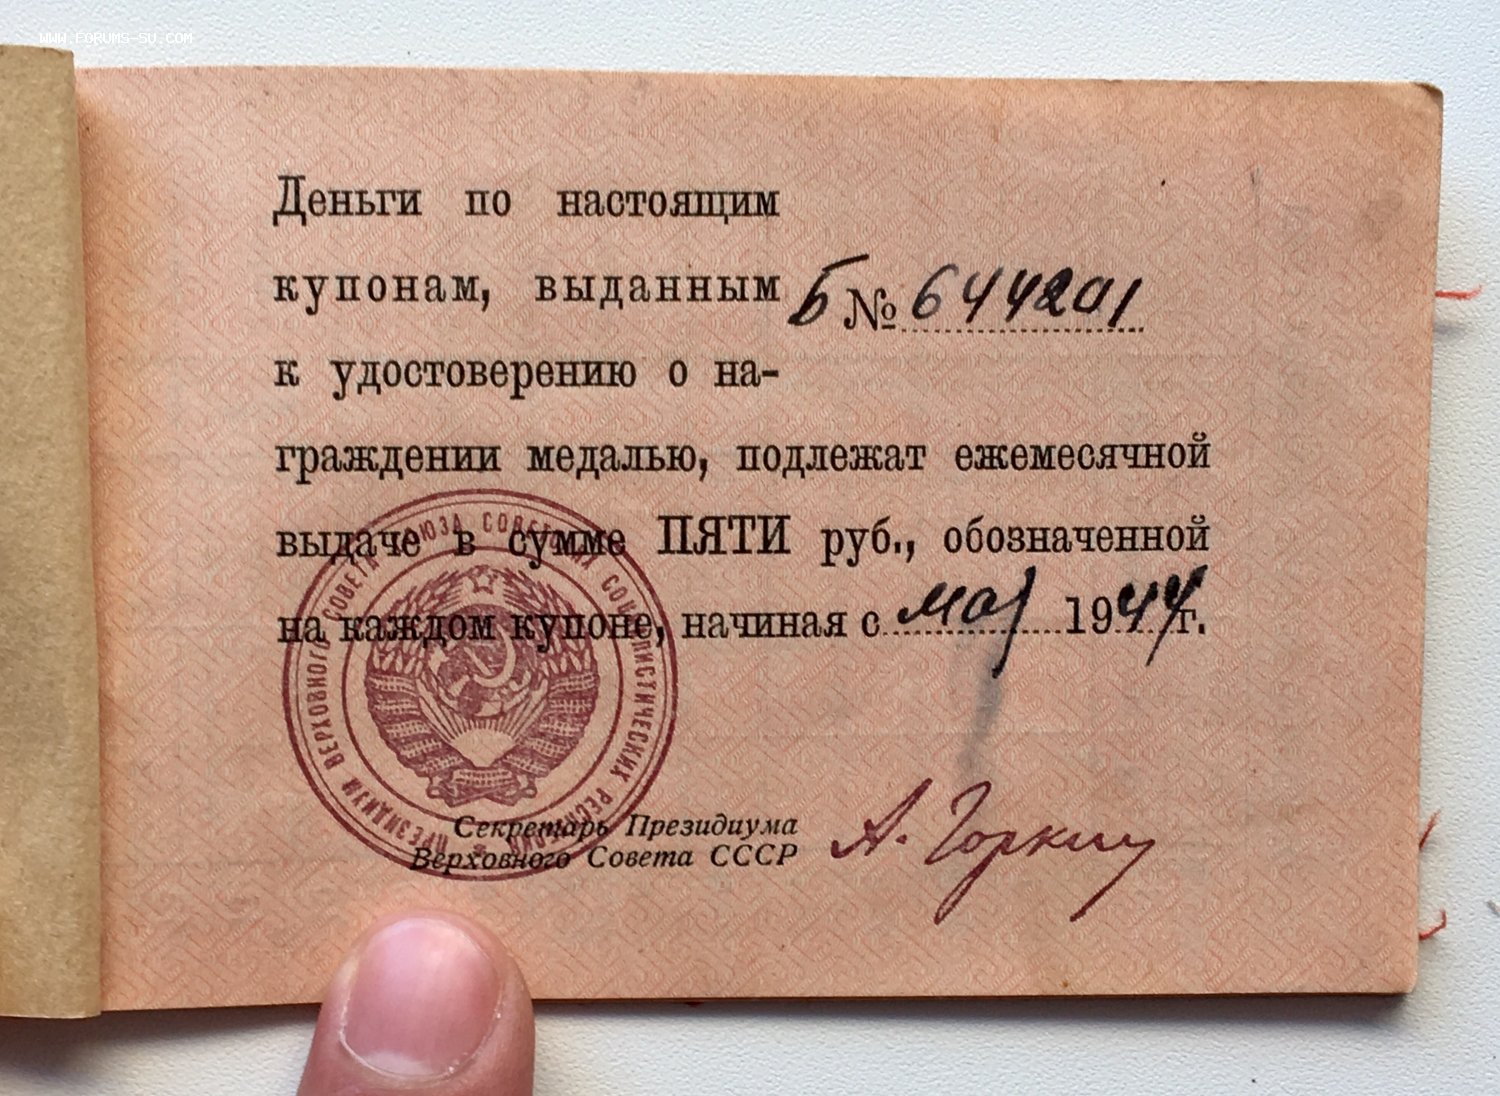 WWW.FORUMS-SU.COM
Деньги по настоящим
купонам, выданным Б № 644201
к удостоверению о на-
граждении медалью, подлежат ежемесячной
выдаче в сумме ПЯТИ руб., обозначенной
на каждом купоне, начиная с мая 1944 г.
ПРЕЗИДИУМ ВЕРХОВНОГО СОВЕТА СОЮЗА СОВЕТСКИХ СОЦИАЛИСТИЧЕСКИХ РЕСПУБЛИК
Секретарь Президиума
Верховного Совета СССР А. Горкин